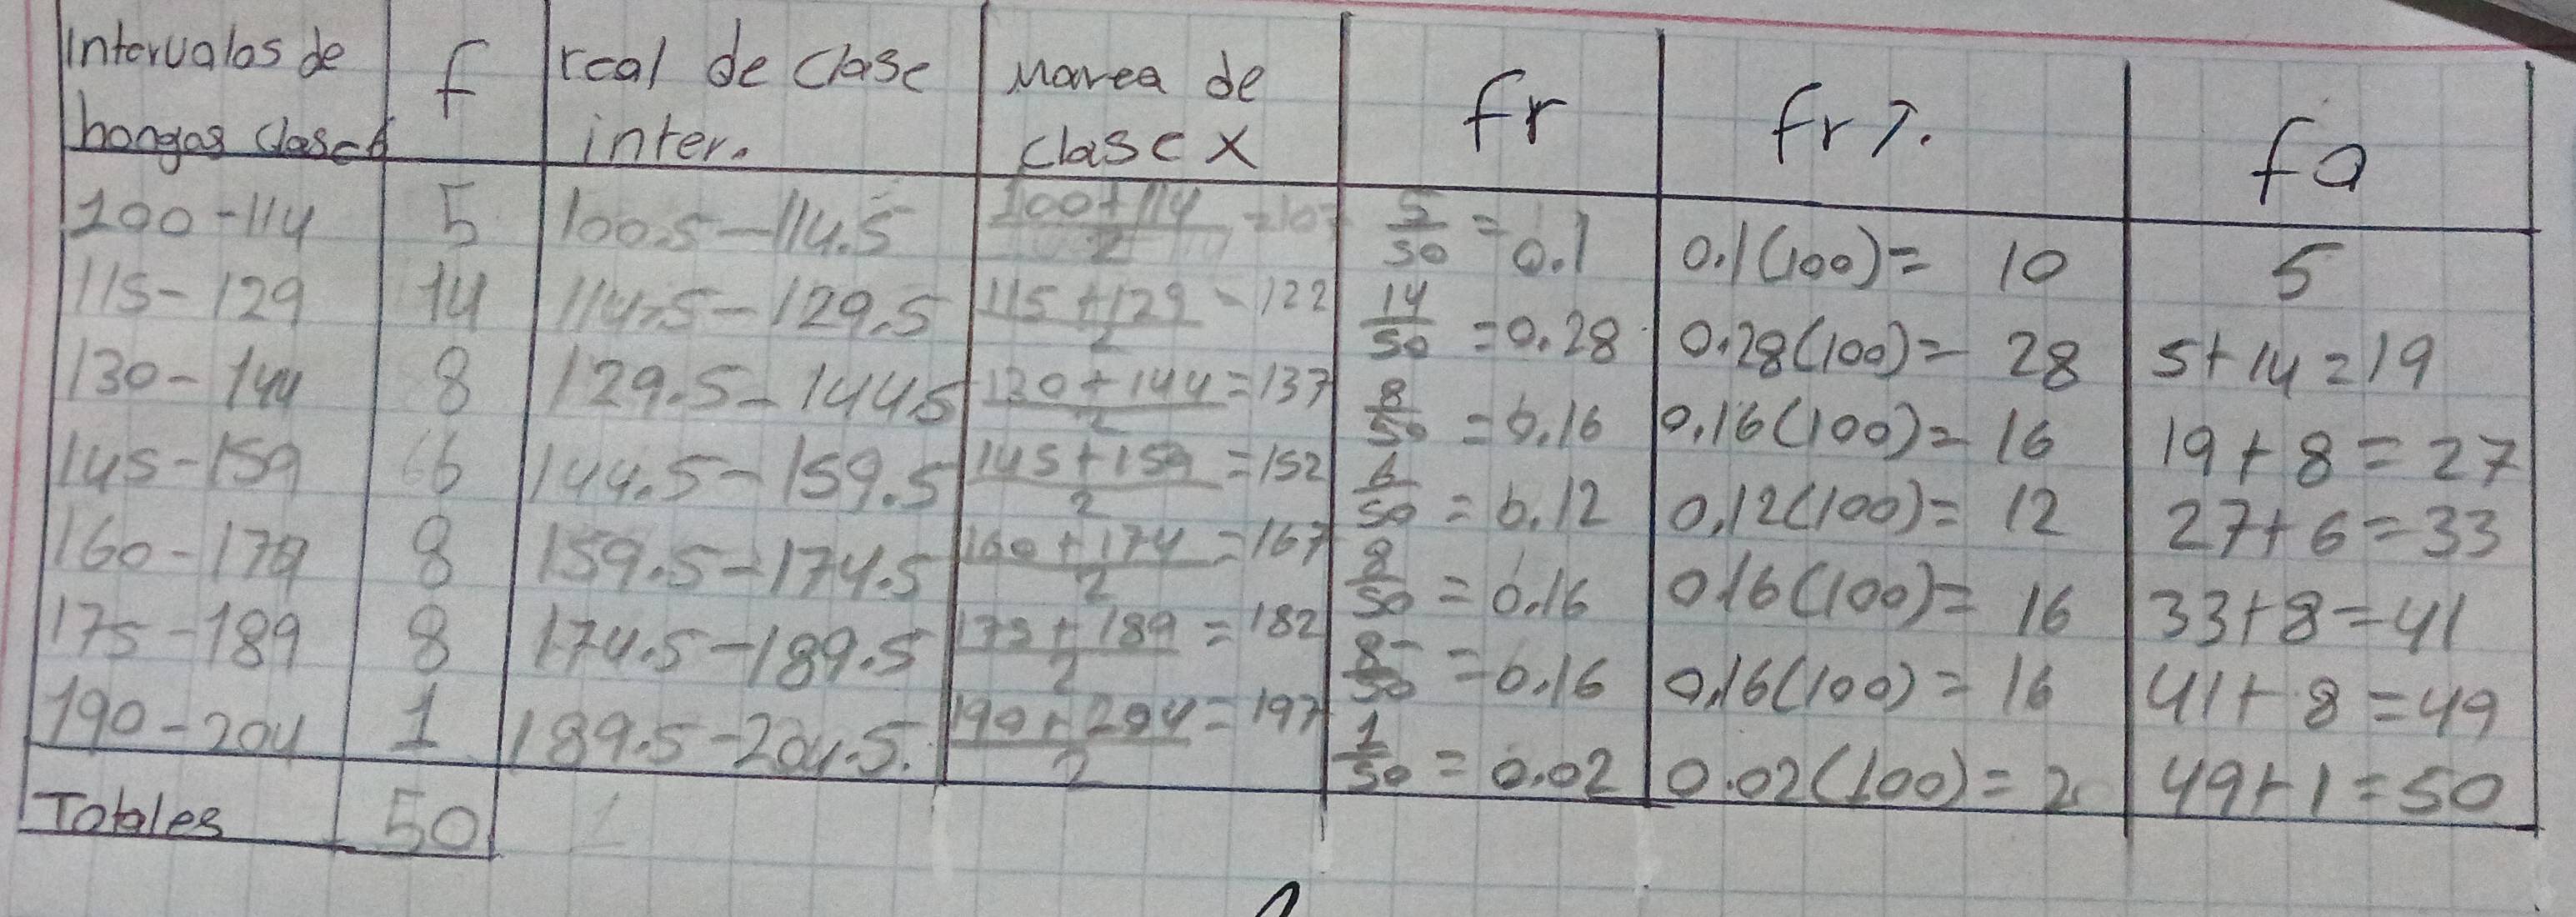 Intervalos de hongos clase | f | real de clase inter. | Marca de clase x | fr | fr %. | fa
100-114 | 5 | 100.5-114.5 | 100+114/2 =107 | 5/50 = 0.1 | 0.1(100)= 10 | 5
115-129 | 14 | 114.5-129.5 | 115+129/2 - 122 | 14/50 =0.28 | 0.28(100)= 28 | 5+14=19
130-144 | 8 | 129.5-144.5 | 130+144/2 =137 | 8/50 =0.16 | 0.16(100)= 16 | 19+8=27
145-159 | 6 | 144.5-159.5 | 145+159/2 =152 | 6/50 =0.12 | 0.12(100)= 12 | 27+6=33
160-174 | 8 | 159.5-174.5 | 160+174/2 =167 | 8/50 =0.16 | 0.16(100)= 16 | 33+8=41
175-189 | 8 | 174.5-189.5 | 175+189/2 =182 | 8/50 =0.16 | 0.16(100)= 16 | 41+8=49
190-204 | 1 | 189.5-204.5. | 190+204/2 =197 | 1/50 =0.02 | 0.02(100)=2 | 49+1=50
Totales | 50